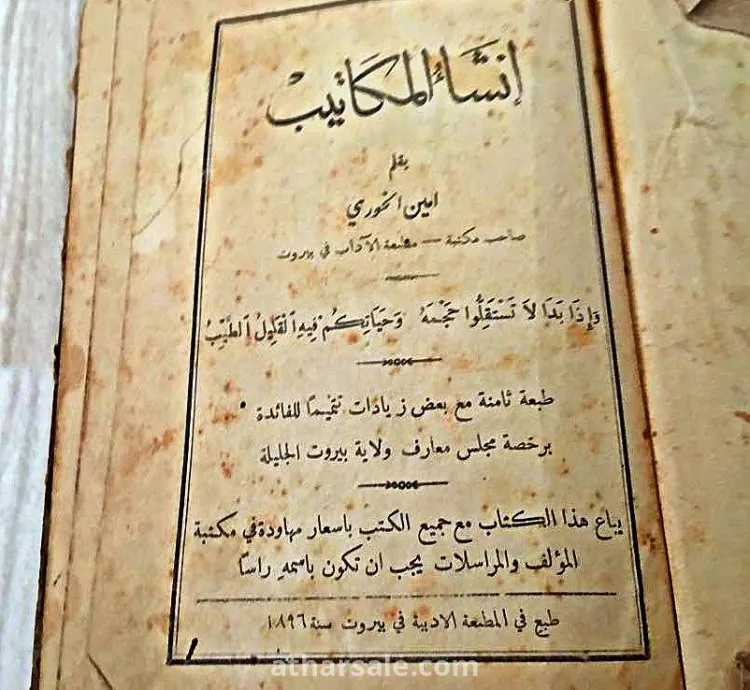 إنشاء المكاتيب
بقلم
امين الخوري
صاحب مكتبة — مطبعة الآداب في بيروت
وَإِذَا بَدَا لاَ تَسْتَقِلُّوا حَجْمَهُ وَحَيَاتِكُمْ فِيهِ الْقَلِيلُ الطَّيِّبُ
طبعة ثامنة مع بعض زيادات تتميمًا للفائدة
برخصة مجلس معارف ولاية بيروت الجليلة
يباع هذا الكتاب مع جميع الكتب باسعار مهاودة في مكتبة
المؤلف والمراسلات يجب ان تكون باسمهِ راسًا
طبع في المطبعة الادبية في بيروت سنة ١٨٩٦
atharsale.com